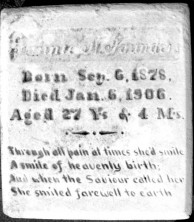 Born Sep. 6, 1878,
Died Jan. 6, 1906.
Aged 27 Ys & 4 Ms.
Through all pain at times she'd smile
A smile of heavenly birth;
And when the Saviour called her
She smiled farewell to earth